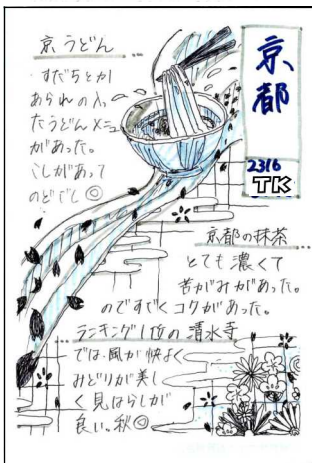 京うどん
すだちとか
あられの入っ
たうどんメニュー
があった。
こしがあって
のどごし◎
京都
2316
TK
京都の抹茶
とても濃くて
苦がみがあった。
のですごくコクがあった。
ランキング1位の清水寺
では風が快よく
みどりが美し
く見はらしが
良い。秋◎